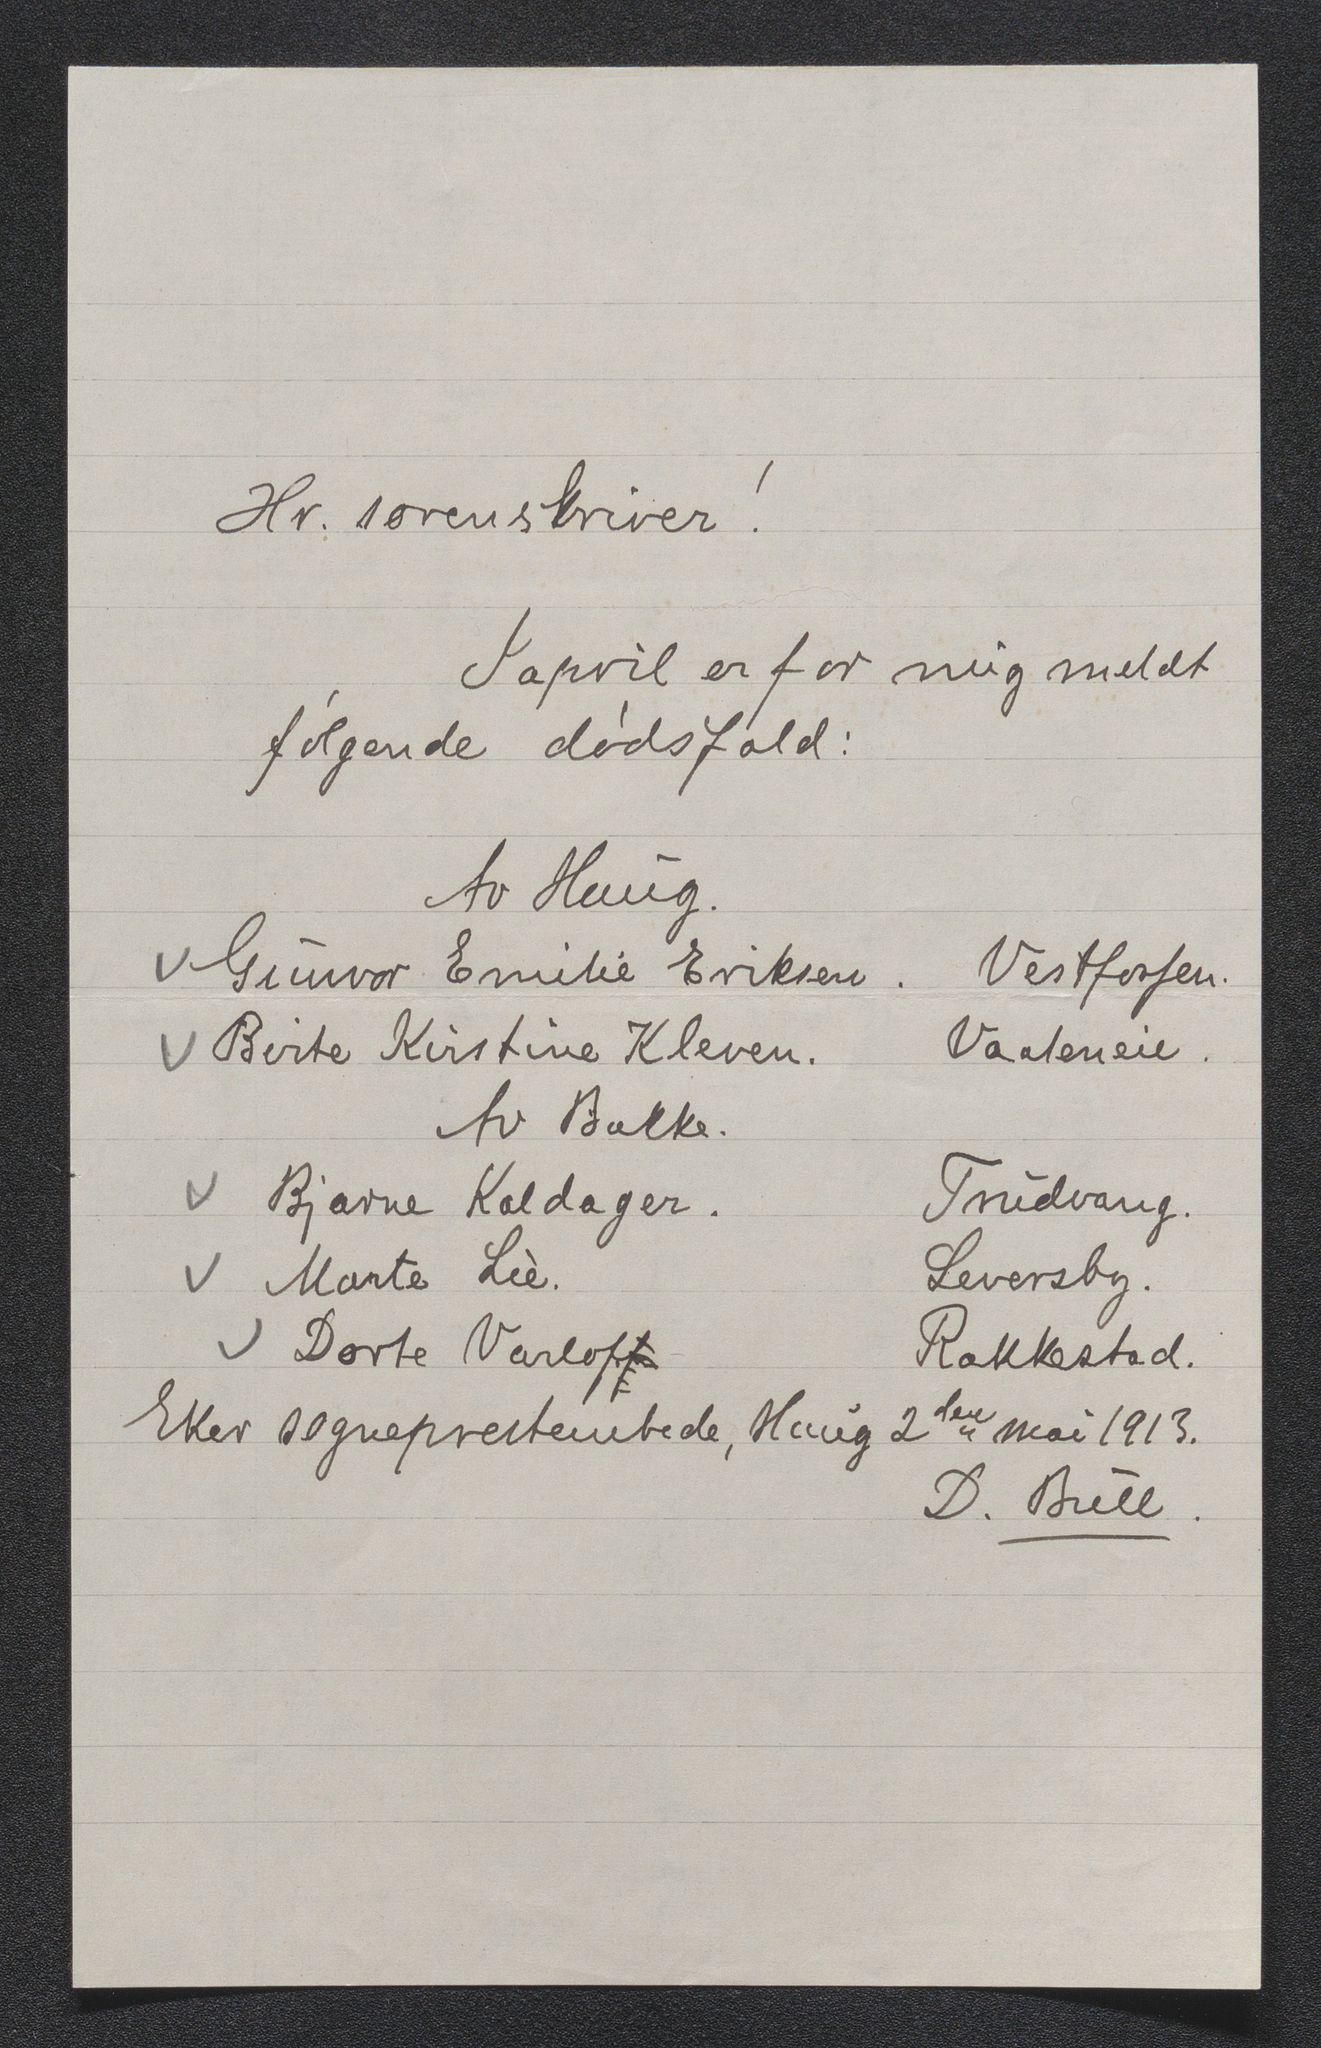 Hr. sorenskriver!
I april er for mig meldt
følgende dødsfald:
Av Haug.
Gunvor Emilie Eriksen. Vestfossen.
Birte Kirstine Kleven. Vaaleneie.
Av Bakke.
Bjarne Kaldager. Trudvang.
Marte Lie. Leversby.
Dorte Rakkestad.
Eker sogneprestembede, Haug 2den mai 1913.
D. Bull.